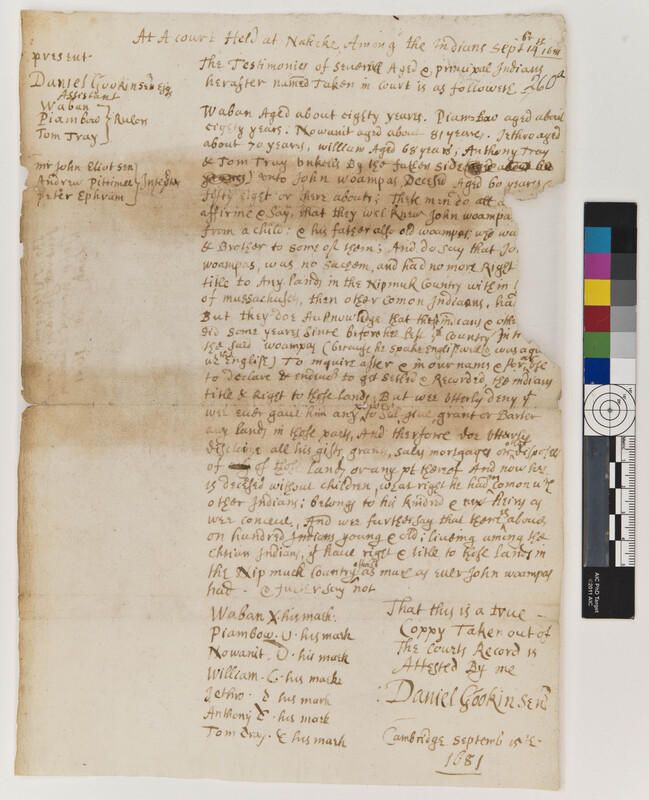 At A court Held at Naticke, Among the Indians Sept 14 1681
present
Daniel Gookin senr Esqr
Assistant
Waban
Piambow
Tom Tray
Rulers
mr John Eliot sen
Andrew Pittimee
Peter Ephraim
Interp
The Testimonies of severall Aged & principal Indians
hereafter named Taken in Court is as followeth
Waban Aged about eighty yeares. Piambow aged about
eighty years. Nowanit aged about 81 yeares. Jethro aged
about 70 years, William Aged 68 years, Anthony Tray
& Tom Tray unkells By the father side
unto John woampas Deceased Aged 60 years &
fifty eight or there abouts; These men do all
affirme & say, that they wel knew John woampa
from a child: & his father also old woampas
& Brother to some of them; And do say that Jo
woampas, was no sachem, and had no more Right
title to Any lands in the Nipmuk Country within
of massachusets, then other comon Indians, ha
But they doe Acknowledge that the indians & othe
did some yeares since before he left ye Country In
the said woampas (because he spake English well & was aqu
wth English) To inquire after & in our names &
to Declare & endevor to get setled & Recorded, the indians
title & Right to those lands; But wee utterly deny yt
wee ever gave him any power to sell, give, grant or Barter
any lands in those parts, And therfore doe utterly
disclaime all his gifts, grants, sales mortgages or disposals
of any of those lands or any pt thereof And now hee
is deceased without children, what right he had in comon wth
other Indians; belongs to his kindred & next heirs as
wee conceive, And wee further say that there is above
on hundred indians young & old; liveing among the
christian Indians, yt have right & title to these lands in
the Nipmuck Country as much as ever John woampas
had. & further say not
Waban X his mark.
Piambow. U. his mark
Nowanit. O. his mark
William. C. his marke
Jethro. his mark
Anthony. his mark
Tom Tray. his mark
That this is a true
Coppy Taken out of
The Courts Record is
Attested By me
Daniel Gookin Senr
Cambridge Septemb 15th
1681
AIC PhD Target
©2011 AIC